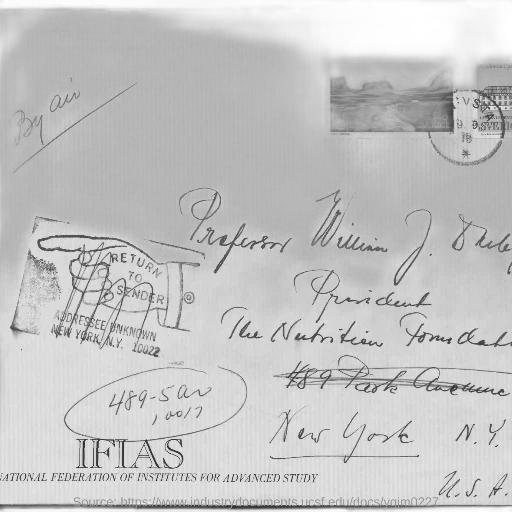 By air
SVERIGE
Professor William J.
President
The Nutrition Foundation
489 Park Avenue
New York N.Y.
U.S.A.
RETURN
TO
SENDER
ADDRESSEE UNKNOWN
NEW YORK, N.Y. 10022
489-5 av
10017
IFIAS
NATIONAL FEDERATION OF INSTITUTES FOR ADVANCED STUDY
Source: https://www.industrydocuments.ucsf.edu/docs/ygjm0227